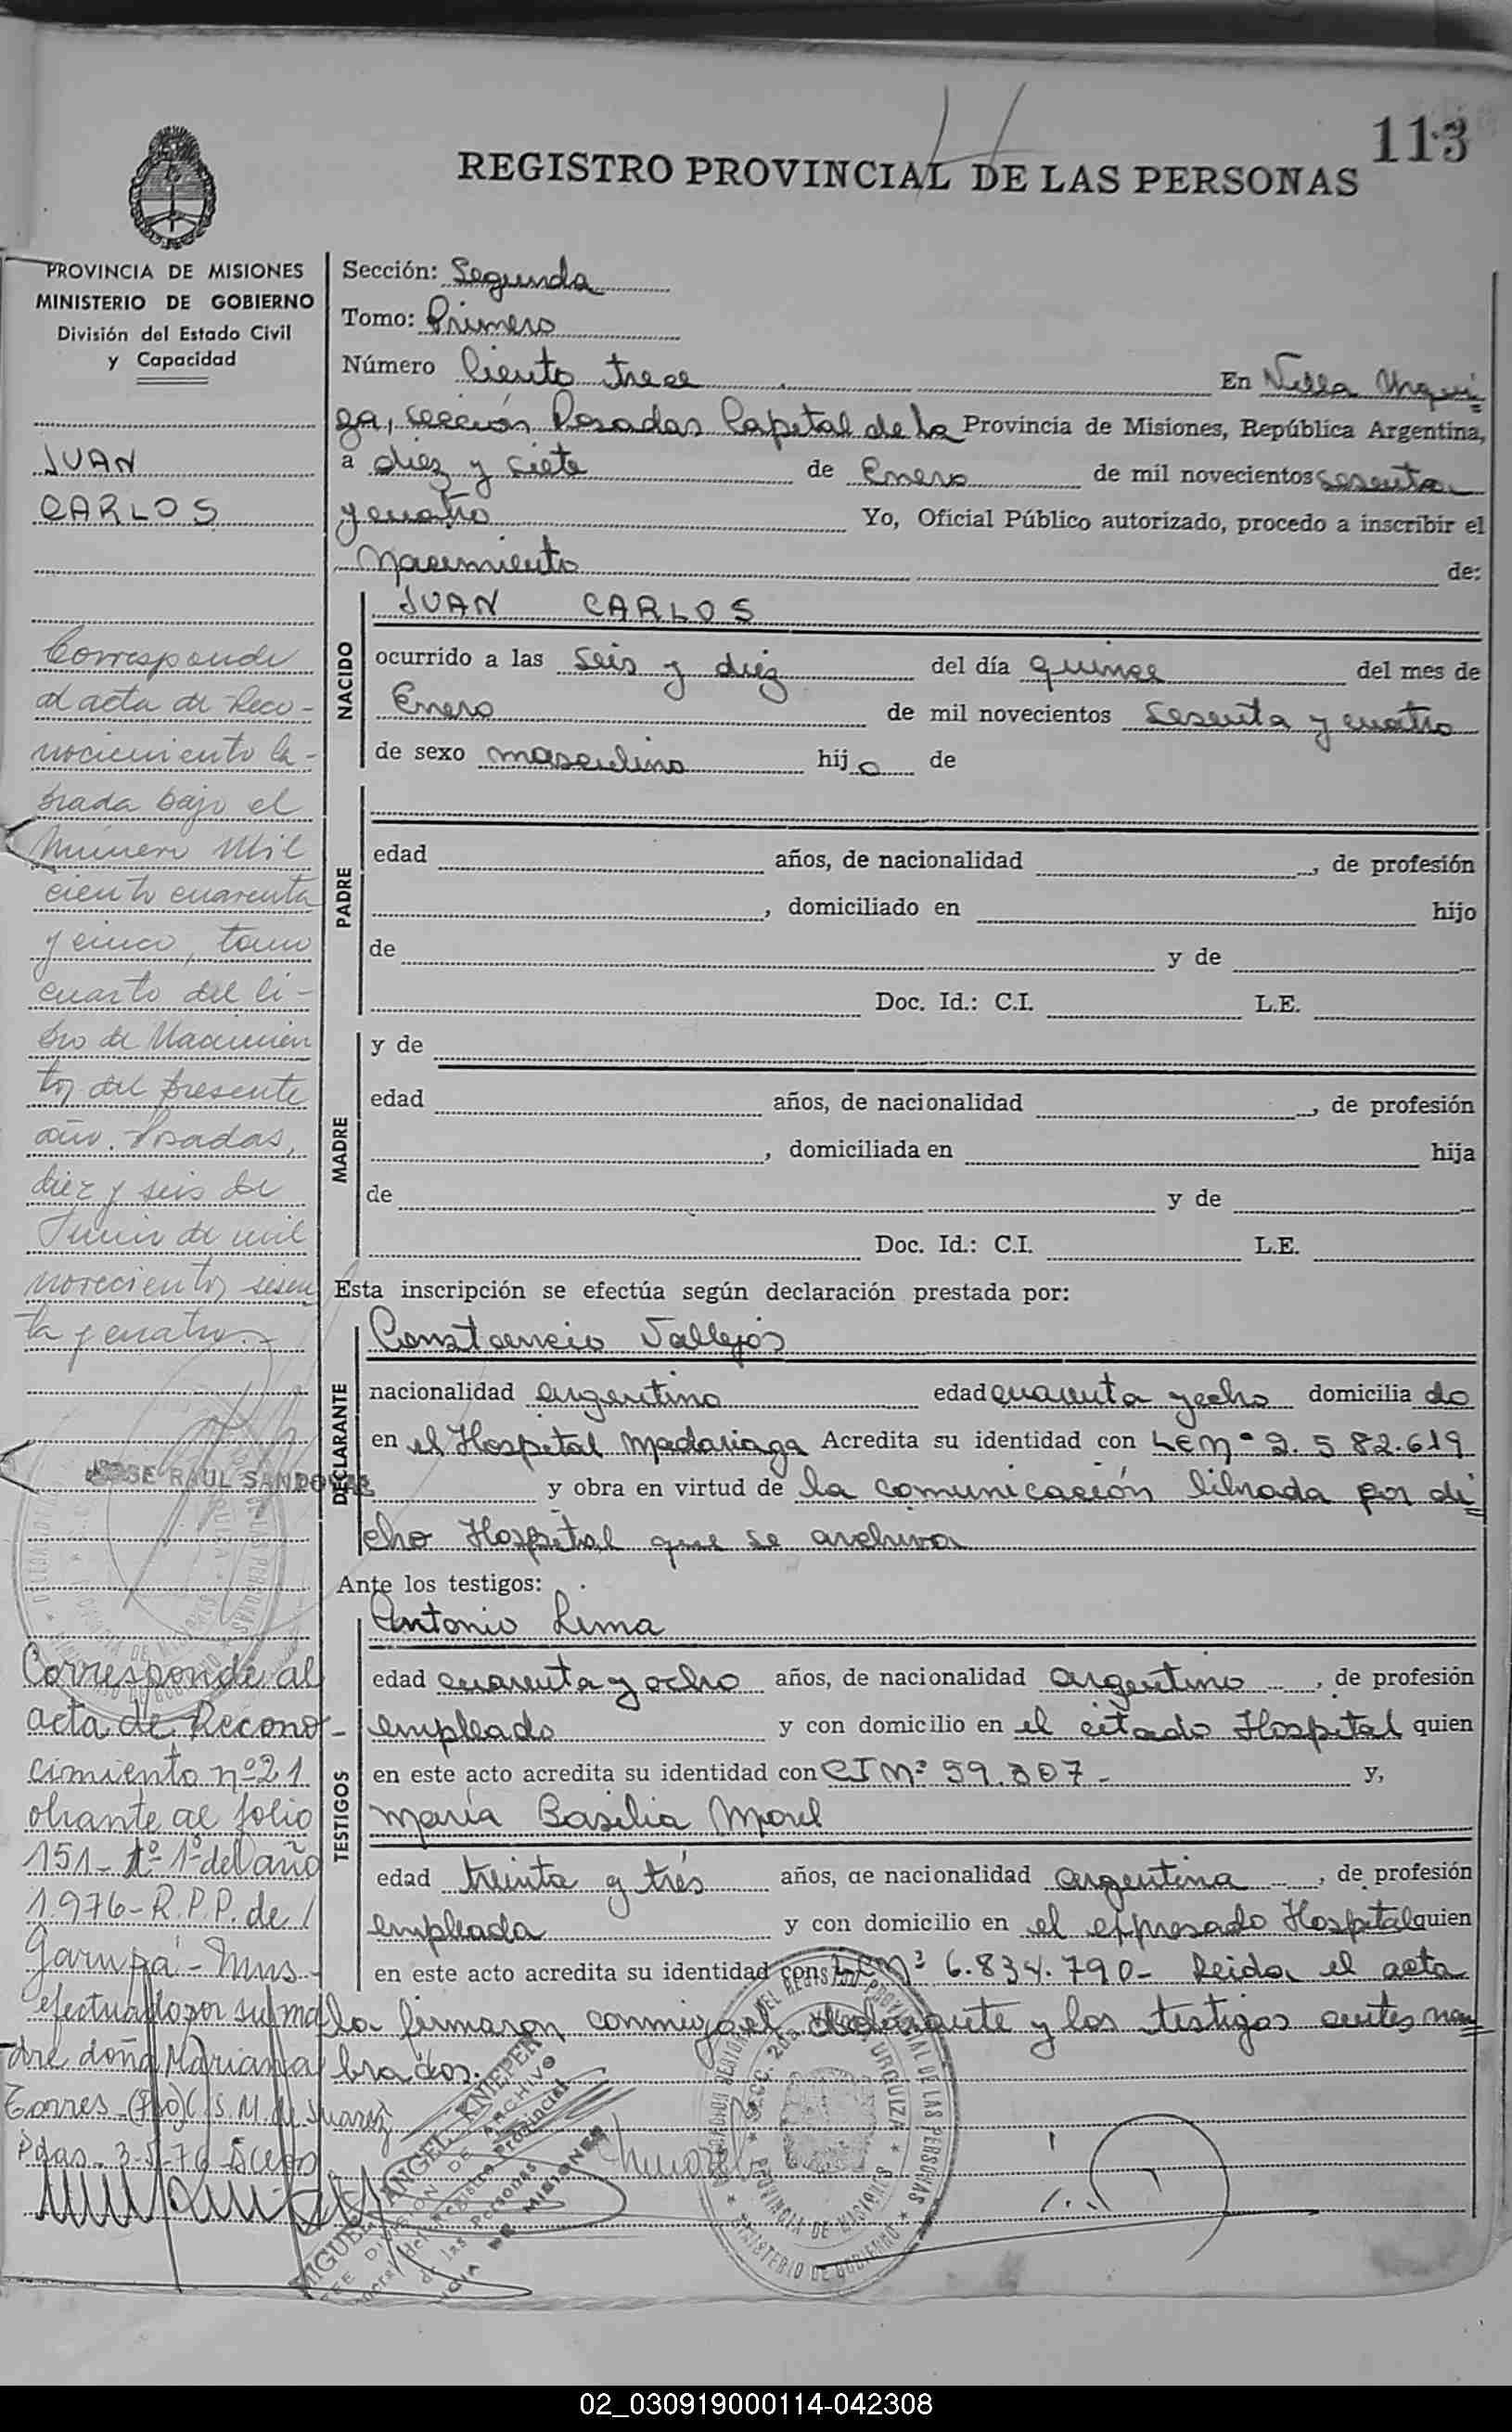 113
REGISTRO PROVINCIAL DE LAS PERSONAS
PROVINCIA DE MISIONES
MINISTERIO DE GOBIERNO
División del Estado Civil
y Capacidad
JUAN
CARLOS
Corresponde
al acta de Reco-
nocimiento la-
brada bajo el
Número Mil
ciento cuarenta
y cinco, tomo
cuarto del li-
bro de Nacimien
tos del presente
año. Posadas,
diez y seis de
Junio de mil
novecientos sesen
ta y cuatro.-
JOSE RAUL SANDOVAL
Corresponde al
acta de Recono-
cimiento nº 21
obrante al folio
151- tº 1º del año
1.976- R.P.P. de
Garupá - Mnes -
efectuado por su ma
dre doña Mariana
Torres
Pdas. 3-5-76
Sección: Segunda
Tomo: Primero
Número Ciento trece En Villa Urqui
za, sección Posadas Capital de la Provincia de Misiones, República Argentina,
a diez y siete de Enero de mil novecientos sesenta
y cuatro Yo, Oficial Público autorizado, procedo a inscribir el
Nacimiento de:
NACIDO
JUAN CARLOS
ocurrido a las seis y diez del día quince del mes de
Enero de mil novecientos sesenta y cuatro
de sexo masculino hijo de
PADRE
edad años, de nacionalidad , de profesión
, domiciliado en hijo
de y de
Doc. Id.: C.I. L.E.
MADRE
y de
edad años, de nacionalidad , de profesión
, domiciliada en hija
de y de
Doc. Id.: C.I. L.E.
Esta inscripción se efectúa según declaración prestada por:
DECLARANTE
Constancio Vallejos
nacionalidad argentino edad cuarenta y ocho domiciliado
en el Hospital Madariaga Acredita su identidad con LE Nº 2.582.619
y obra en virtud de la comunicación librada por di
cho Hospital que se archiva
Ante los testigos:
TESTIGOS
Antonio Lima
edad cuarenta y ocho años, de nacionalidad argentino , de profesión
empleado y con domicilio en el citado Hospital quien
en este acto acredita su identidad con CI Nº 59.307- y,
María Basilia Morel
edad treinta y trés años, de nacionalidad argentina , de profesión
empleada y con domicilio en el expresado Hospital quien
en este acto acredita su identidad con Nº 6.834.790- Leida el acta
la firmaron conmigo el declarante y los testigos antes nom
brados.
MIGUEL ANGEL KNIEPER
JEFE DIVISION DE ARCHIVO
General del Registro Provincial
de las Personas
PROVINCIA DE MISIONES
DEL REGISTRO PROVINCIAL DE LAS PERSONAS
SECC. 2da. V. URQUIZA
PROVINCIA DE MISIONES
MINISTERIO DE GOBIERNO
02_030919000114-042308